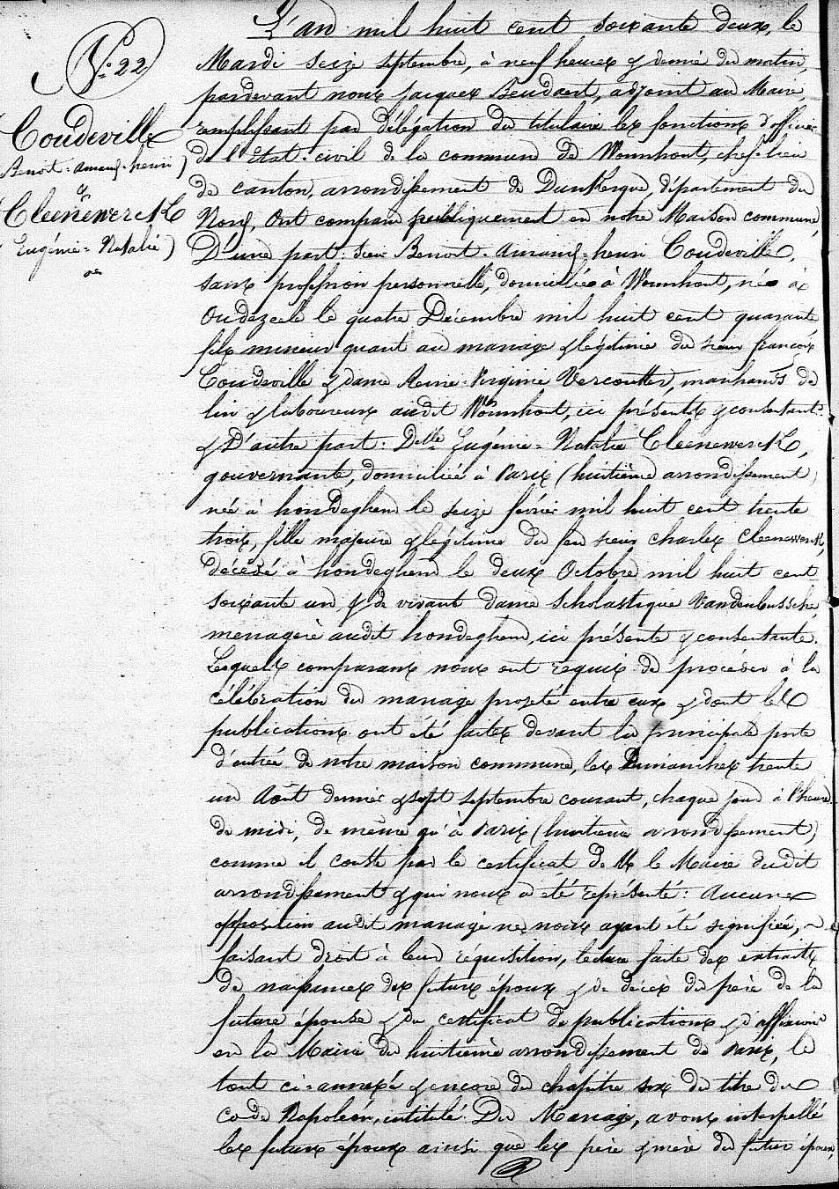 N.º 22
Coudeville
Benoit-Amand-henri)
&
Cleenewerck
Eugénie-Natalie)
L'an mil huit cent soixante deux, le
Mardi seize septembre, à neuf heures & demie du matin,
pardevant nous Jacques Beudaert, adjoint au Maire
remplissant par délégation du titulaire les fonctions d'officier
de l'Etat-civil de la commune de Wormhout, chef-lieu
de canton, arrondissement de Dunkerque, département du
Nord, Ont comparu publiquement en notre Maison commune
D'une part: sieur Benoit-Amand-henri Coudeville,
sans profession personnelle, domicilié à Wormhout, né à
Oudezeele le quatre Décembre mil huit cent quarante
fils mineur quant au mariage & légitime du sieur françois
Coudeville & dame Reine-Virginie Vercoutter, marchands de
lin & laboureurs audit Wormhout, ici présents & consentants
& D'autre part: Delle Eugénie-Natalie Cleenewerck,
gouvernante, domiciliée à Paris (huitième arrondissement)
née à hondeghem le seize février mil huit cent trente
trois, fille majeure & légitime du feu sieur Charles Cleenewerck,
décédé à hondeghem le deux Octobre mil huit cent
soixante un, & de vivant dame Scholastique Vandenbussche,
menagère audit hondeghem, ici présente & consentante.
Lesquels comparans nous ont requis de procéder à la
célébration du mariage projeté entre eux & dont les
publications ont été faites devant la principale porte
d'entrée de notre maison commune, les Dimanches trente
un Août dernier & sept septembre courant, chaque fois à l'heure
de midi, de même qu'à Paris (huitième arrondissement)
comme il conste par le certificat de M le Maire dudit
arrondissement & qui nous a été représenté: Aucune
opposition audit mariage ne nous ayant été signifiée,
faisant droit à leur réquisition, lecture faite des extraits
de naissances des futurs époux & de décès du père de la
future épouse & du certificat de publications & d'affiches
en la Mairie du huitième arrondissement de Paris, le
tout ci-annexé & encore du chapitre six du titre du
code Napoléon, intitulé: Du Mariage, avons interpellé
les futurs époux ainsi que les père & mère du futur époux,